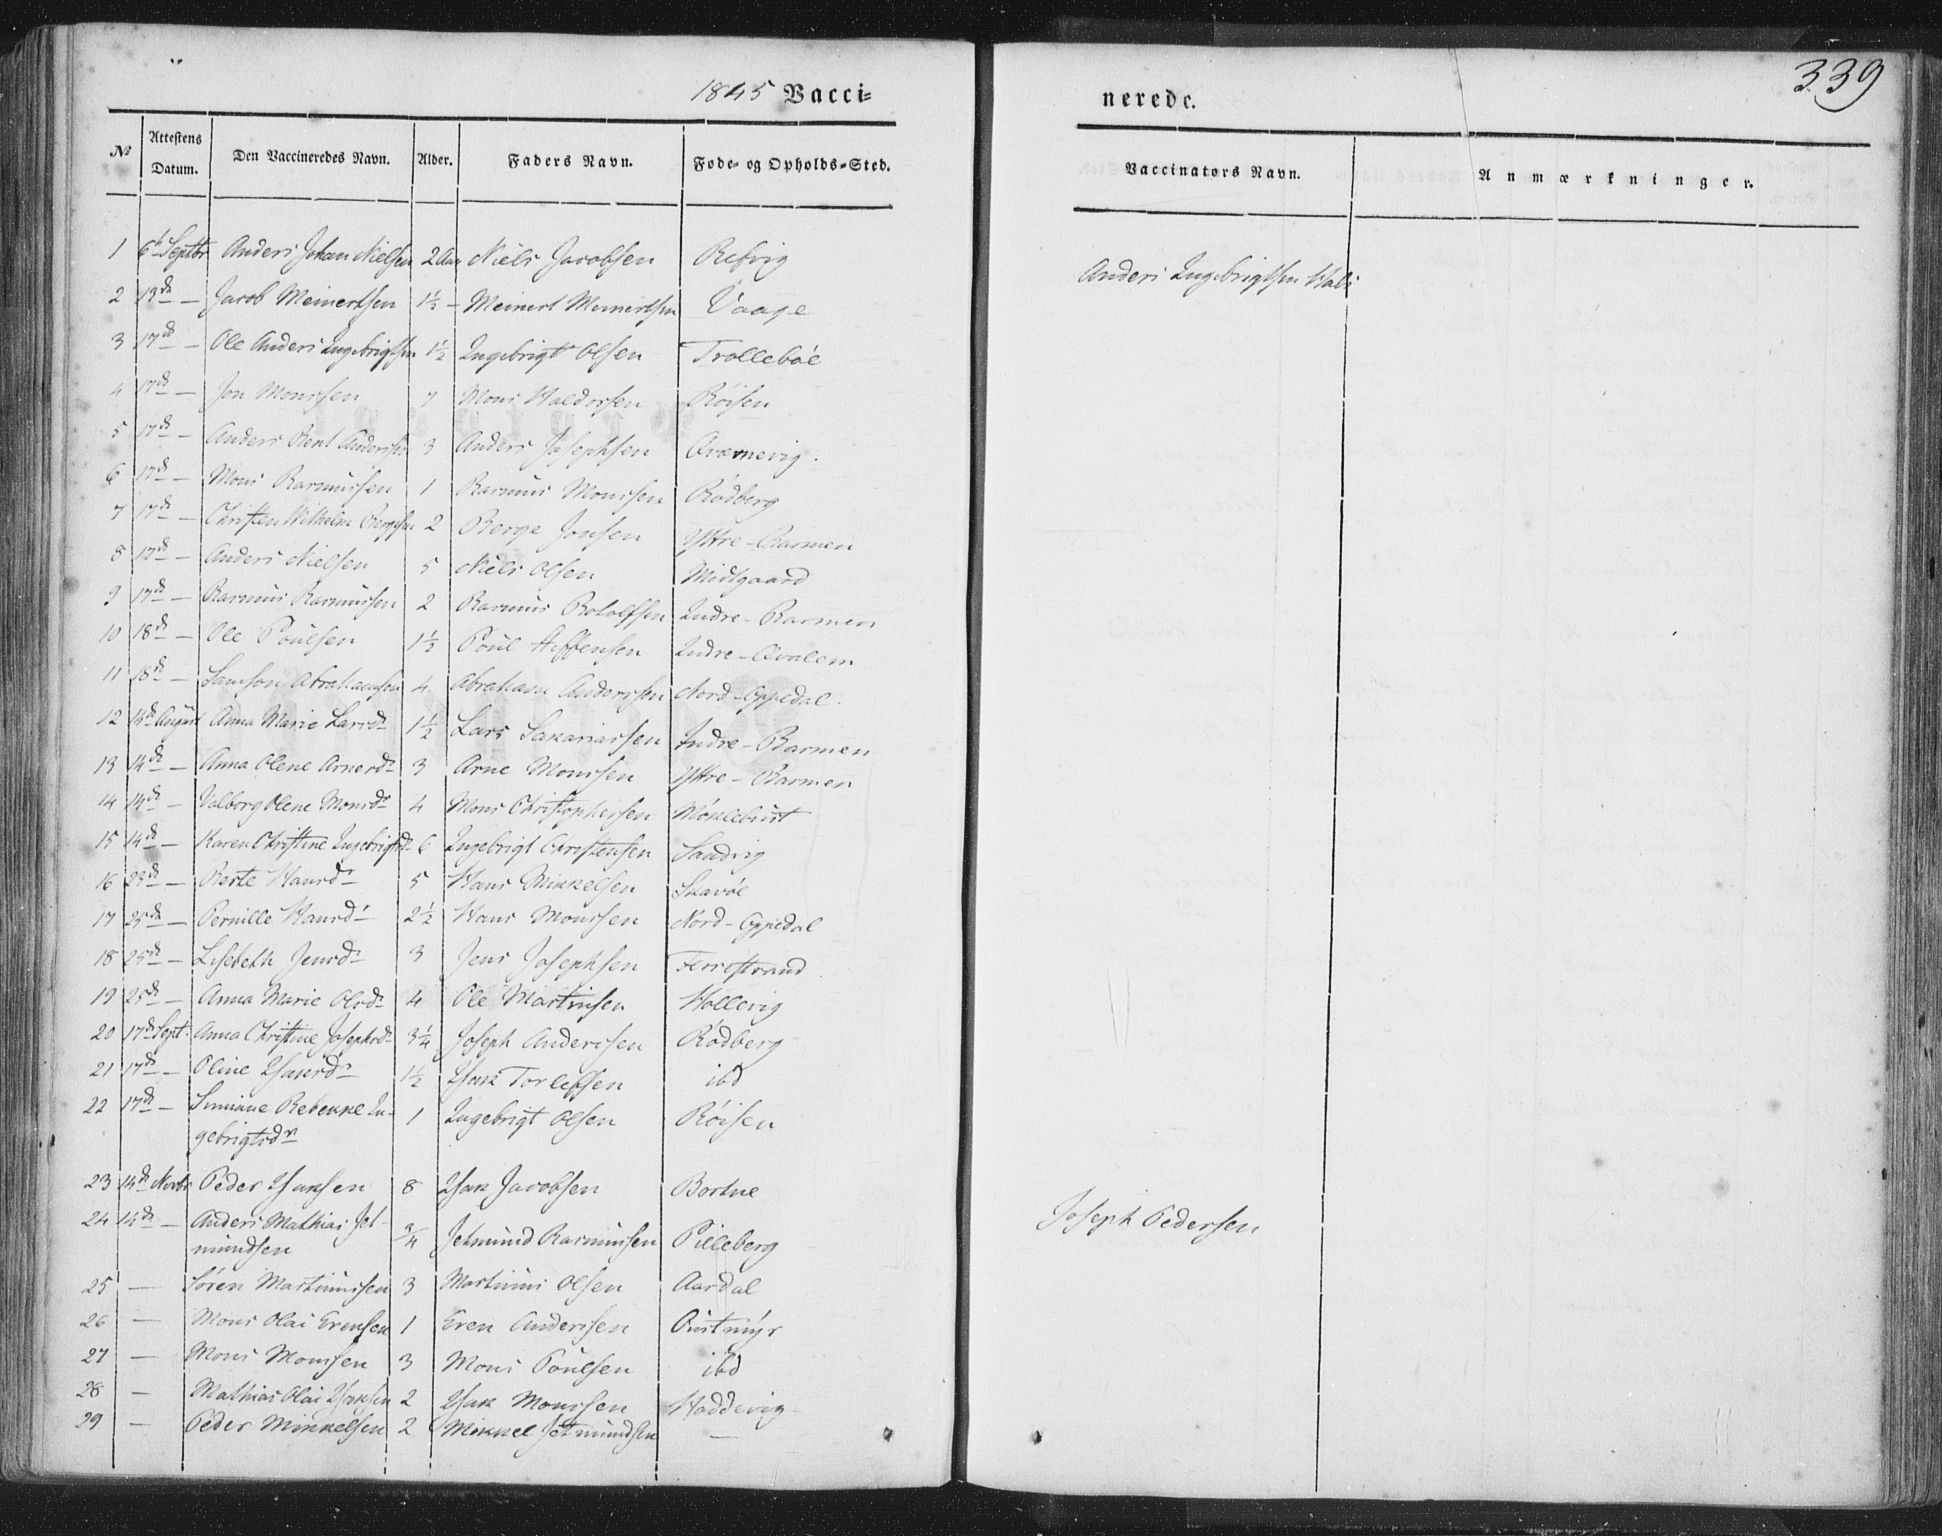 339
1845 Vacci=
nerede.
№ Attestens Datum. Den Vaccineredes Navn. Alder. Faders Navn. Føde- og Opholds-Sted. Vaccinators Navn. Anmærkninger.
1 6t Septbr Anders Johan Nielsen 2 Aar Niels Jacobsen Refvig Anders Ingebrigtsen
2 13de — Jacob Meinertsen 1½ — Meinert Meinertsen Vaage
3 17de — Ole Anders Ingebrigtsen 1½ Ingebrigt Olsen Trolleböe
4 17de — Jon Monssen 7 Mons Haldorsen Röisen
5 17de — Anders Bent Anderssen 3 Anders Josephsen Qvernevig.
6 17de — Mons Rasmussen 1 Rasmus Monssen Rödberg
7 17de — Christen Wilhelm Bergesen 2 Berge Jonsen Yttre-Barmen
8 17de — Anders Nielsen 5 Niels Olsen Midtgaard
9 17de — Rasmus Rasmussen 2 Rasmus Botolfsen Indre-Barmen
10 18de — Ole Poulsen 1½ Poul Steffensen Indre-Qvalem
11 18de — Samson Abrahamsen 4 Abraham Anderssen Nord-Oppedal.
12 14de August Anna Marie Larsdr 1½ Lars Sakariassen Indre-Barmen
13 14de — Anna Olene Arnesdr 3 Arne Monssen Yttre-Barmen
14 14de — Valborg Olene Monsdr 4 Mons Christophersen Möklebust
15 14de — Karen Christine Ingebrigtsdr 6 Ingebrigt Christensen Sandvig
16 23de — Berte Hansdr 5 Hans Mikkelsen Skavöe
17 25de — Pernille Hansdr 2½ Hans Monssen Nord-Oppedal
18 25de — Lisebeth Jensdr 3 Jens Josephsen Ferrestrand
19 25de — Anna Marie Olsdr 4 Ole Martinsen Hollevig
20 17de Sept. Anna Christine Josephsdr 3¼ Joseph Anderssen Rödberg
21 17de — Oline Isaksdr 1½ Isak Torlefsen ibd
22 17de — Rebekke In- 1 Ingebrigt Olsen Röisen
gebrigtsdr
23 14de Novbr Peder Isaksen 8 Isak Jacobsen Bortne
24 14de — Anders Mathias Jet- ¾ Jetmund Rasmussen Pilleberg Joseph Pedersen
mundsen
25 — Sören Martinussen 3 Martinus Olsen Aardal
26 — Mons Olai Erensen 1 Eren Anderssen Oustmyr
27 — Mons Monssen 3 Mons Poulsen ibd
28 — Mathias Olai Isaksen 2 Isak Monssen Haddevig
29 — Peder Mikkelsen 2 Mikkel Jetmundsen —